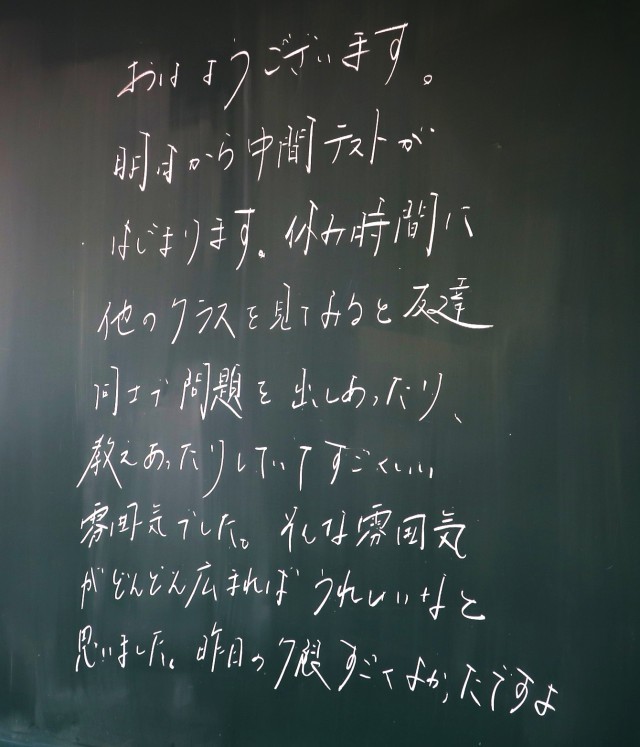 おはようございます。
明日から中間テストが
はじまります。休み時間に
他のクラスを見てみると友達
同士で問題を出しあったり、
教えあったりしていてすごくいい
雰囲気でした。そんな雰囲気
がどんどん広まればうれしいなと
思いました。昨日の7限すごくよかったですよ